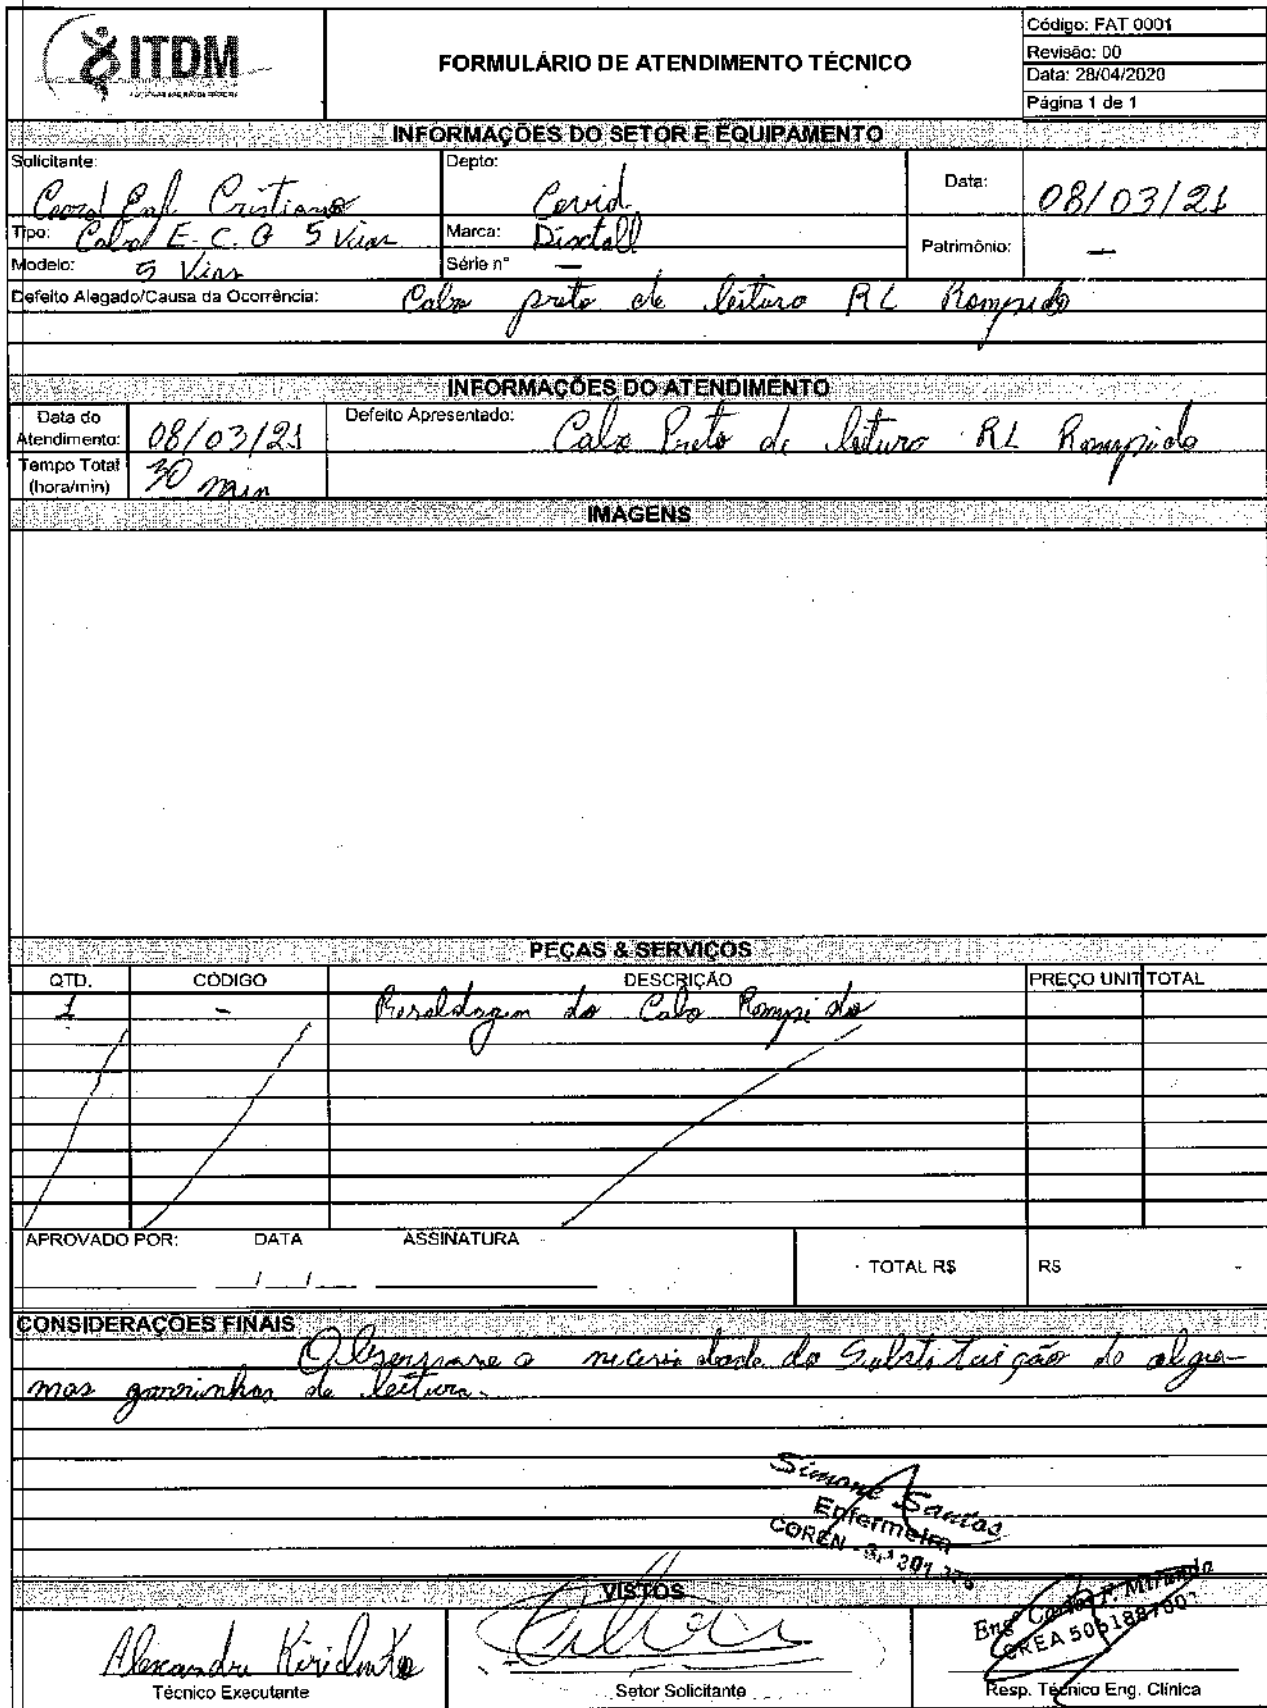 ITDM
FORMULÁRIO DE ATENDIMENTO TÉCNICO
Código: FAT 0001
Revisão: 00
Data: 28/04/2020
Página 1 de 1
INFORMAÇÕES DO SETOR E EQUIPAMENTO
Solicitante: Coord Enf. Cristiano
Depto: Covid
Data: 08/03/21
Tipo: Cabo E.C.G 5 Vias
Marca: Dixtall
Patrimônio: —
Modelo: 5 Vias
Série n° —
Defeito Alegado/Causa da Ocorrência: Cabo preto de leitura RL Rompido
INFORMAÇÕES DO ATENDIMENTO
Data do Atendimento: 08/03/21
Defeito Apresentado: Cabo Preto de leitura RL Rompido
Tempo Total (hora/min) 30 min
IMAGENS
PEÇAS & SERVIÇOS
QTD. CÓDIGO DESCRIÇÃO PREÇO UNIT TOTAL
1 - Resoldagem do Cabo Rompido
APROVADO POR: DATA ASSINATURA
__/__/__
TOTAL R$ R$ -
CONSIDERAÇÕES FINAIS
a necessidade da Substituição de algu-
mas garrinhas de leitura.
Simone Santos
Enfermeira
COREN - SP
VISTOS
Engº Carlos F. Miranda
CREA
Alexandre
Técnico Executante
Setor Solicitante
Resp. Técnico Eng. Clínica